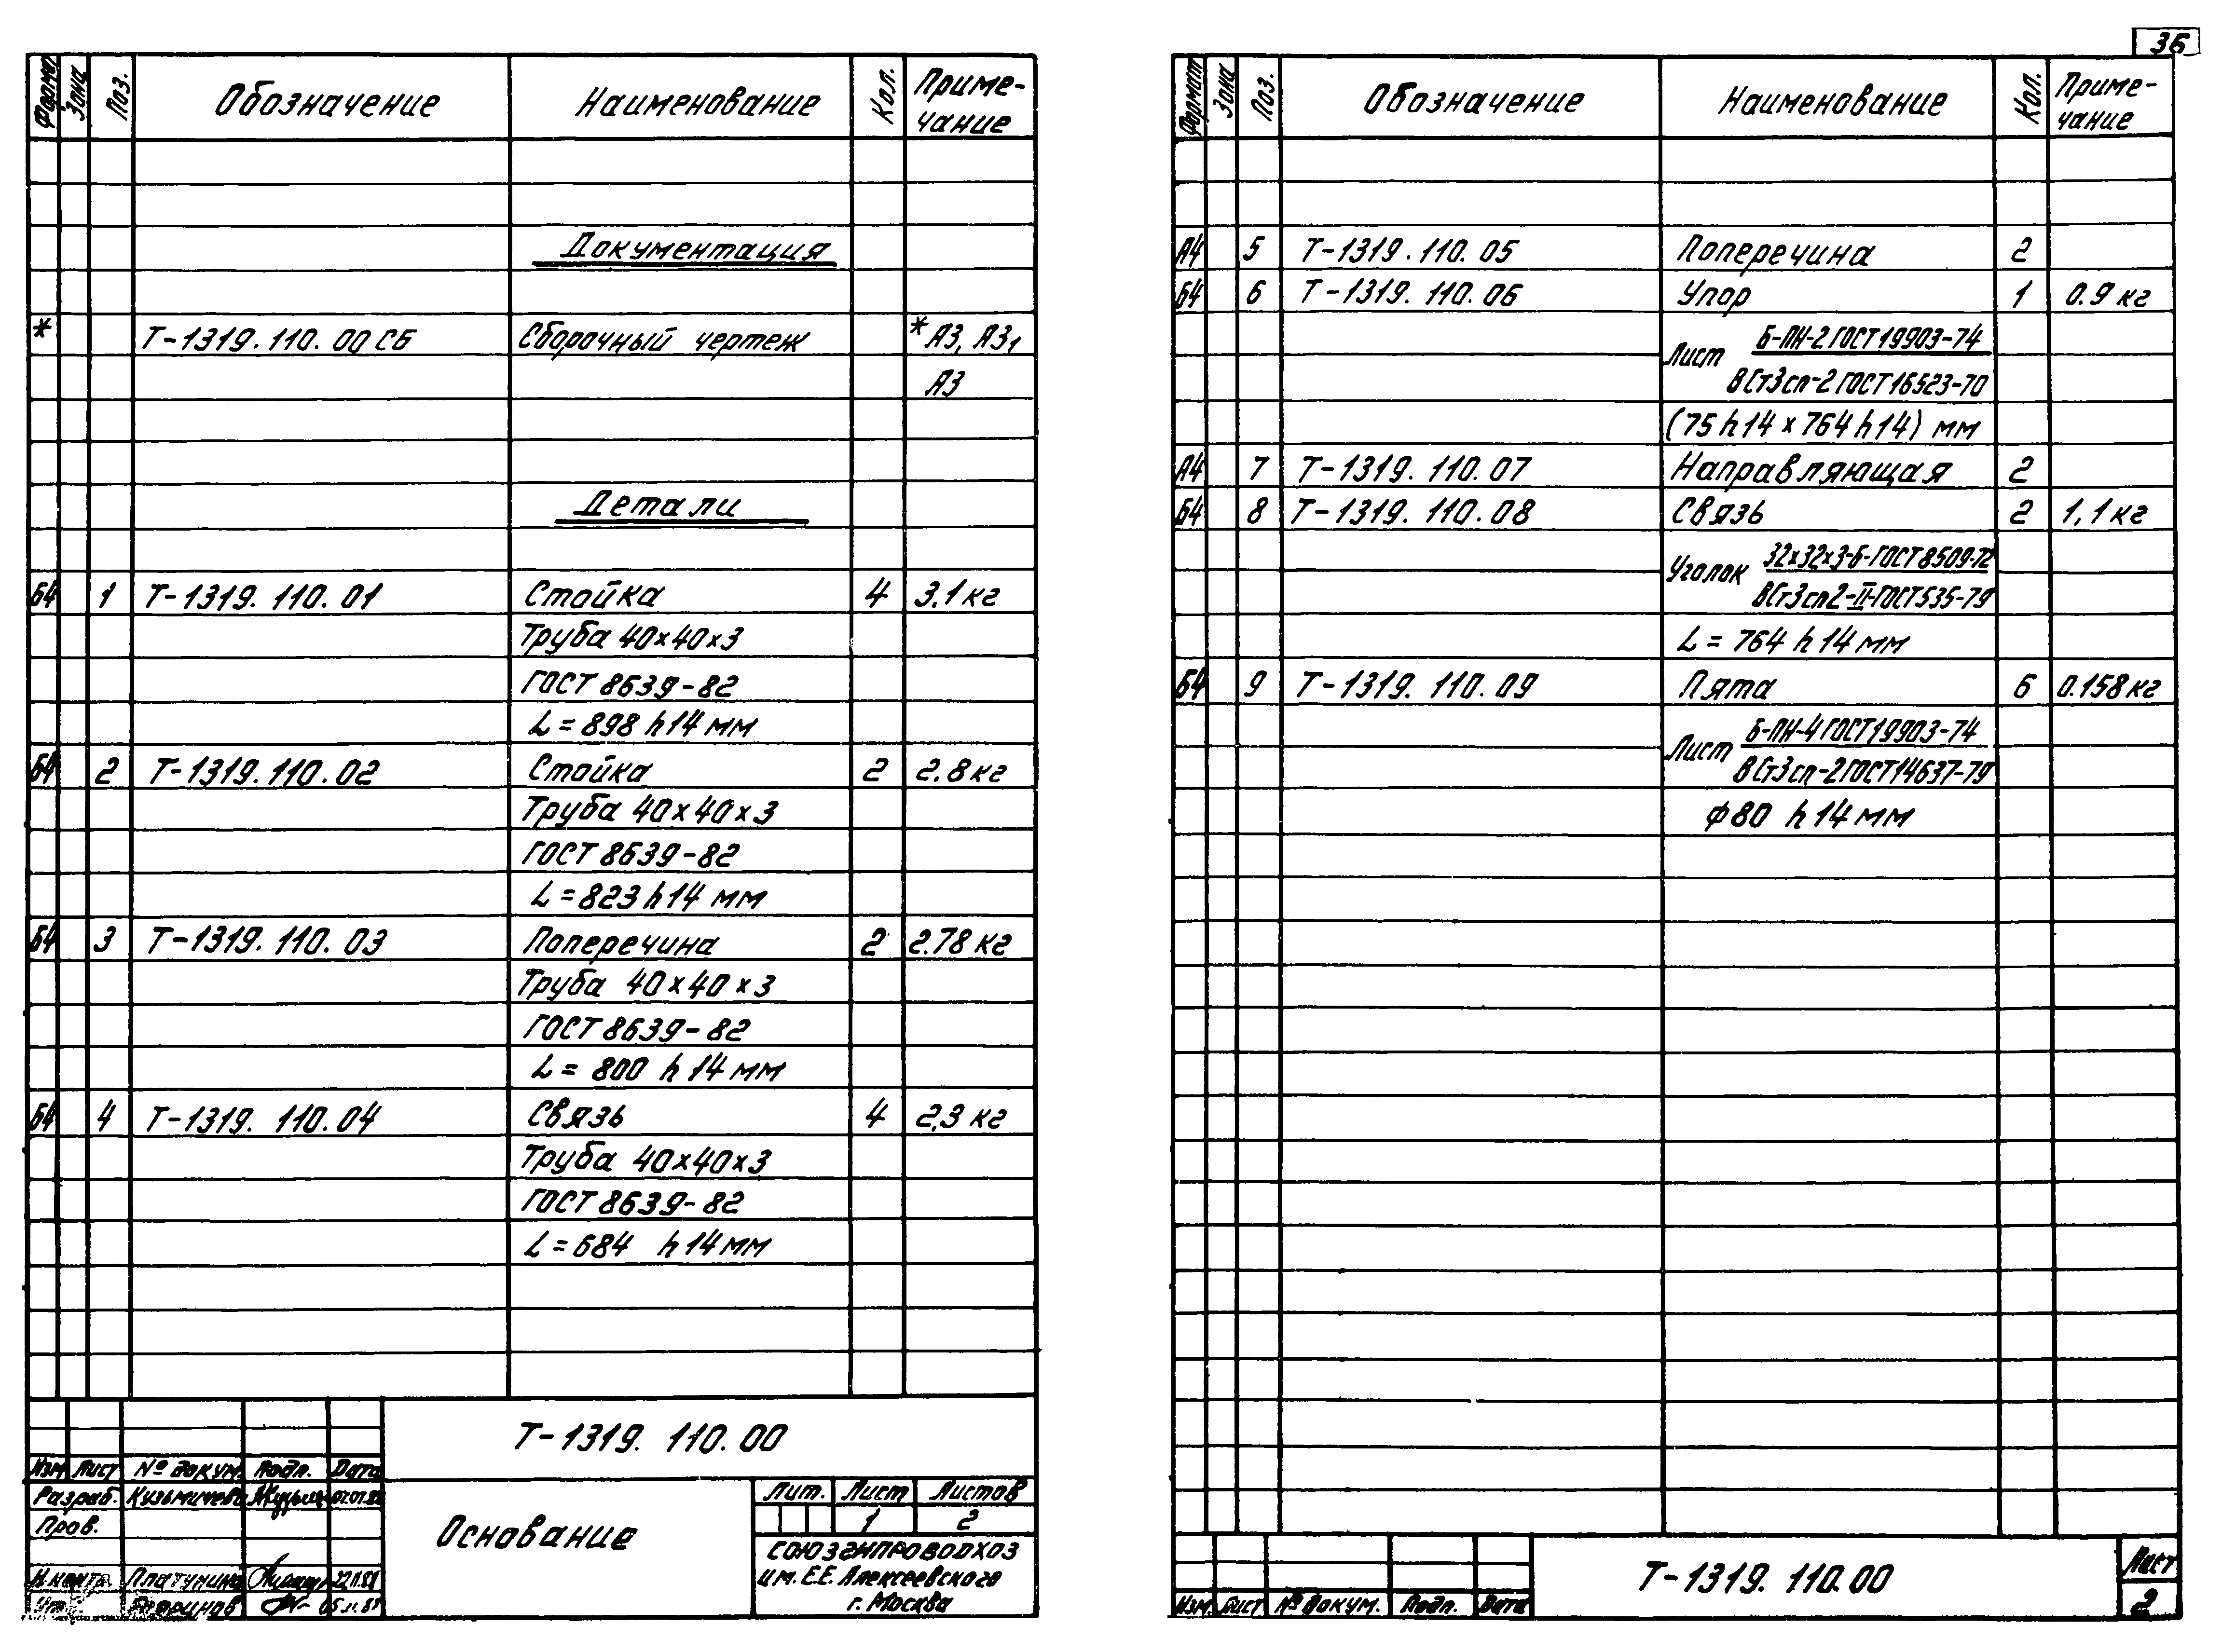 36
Формат Зона Поз. Обозначение Наименование Кол. Приме-
чание
Документация
* Т-1319.110.00 СБ Сборочный чертеж * А3, А3,
А3
Детали
Б4 1 Т-1319.110.01 Стойка 4 3,1 кг
Труба 40х40х3
ГОСТ 8639-82
L = 898 h14 мм
Б4 2 Т-1319.110.02 Стойка 2 2.8 кг
Труба 40х40х3
ГОСТ 8639-82
L = 823 h14 мм
Б4 3 Т-1319.110.03 Поперечина 2 2.78 кг
Труба 40х40х3
ГОСТ 8639-82
L = 800 h14 мм
Б4 4 Т-1319.110.04 Связь 4 2,3 кг
Труба 40х40х3
ГОСТ 8639-82
L = 684 h14 мм
Т-1319.110.00
Изм Лист № докум. Подп. Дата
Разраб. Кузьмичева
Пров.
Н.контр. Платунина
Основание
Лит. Лист Листов
1 2
СОЮЗГИПРОВОДХОЗ
им. Е.Е. Алексеевского
г. Москва
Формат Зона Поз. Обозначение Наименование Кол. Приме-
чание
А4 5 Т-1319.110.05 Поперечина 2
Б4 6 Т-1319.110.06 Упор 1 0.9 кг
Лист Б-ПН-2 ГОСТ 19903-74
ВСт3сп-2 ГОСТ 16523-70
(75 h14 х 764 h14) мм
А4 7 Т-1319.110.07 Направляющая 2
Б4 8 Т-1319.110.08 Связь 2 1,1 кг
Уголок 32х32х3-Б-ГОСТ 8509-72
ВСт3сп2-II-ГОСТ 535-79
L = 764 h14 мм
Б4 9 Т-1319.110.09 Пята 6 0.158 кг
Лист Б-ПН-4 ГОСТ 19903-74
ВСт3сп-2 ГОСТ 14637-79
ф80 h14 мм
Т-1319.110.00
Изм. Лист № докум. Подп. Дата
Лист
2